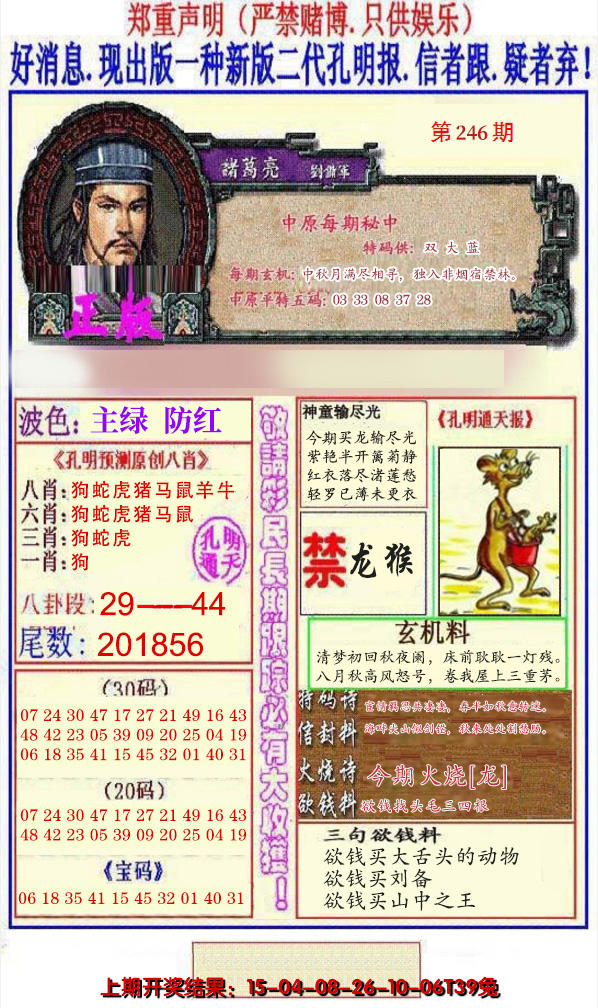 郑重声明（严禁赌博.只供娱乐）
好消息.现出版一种新版二代孔明报.信者跟.疑者弃！
第 246 期
諸葛亮 劉備軍
中原每期秘中
特码供：双 大 蓝
每期玄机：中秋月满尽相寻，独入非烟宿禁林。
中原平特五码：03 33 08 37 28
正版
波色：主绿 防红
《孔明预测原创八肖》
八肖：狗蛇虎猪马鼠羊牛
六肖：狗蛇虎猪马鼠
三肖：狗蛇虎
一肖：狗
孔明
通天
八卦段：29----44
尾数：201856
（30码）
07 24 30 47 17 27 21 49 16 43
48 42 23 05 39 09 20 25 04 19
06 18 35 41 15 45 32 01 40 31
（20码）
07 24 30 47 17 27 21 49 16 43
48 42 23 05 39 09 20 25 04 19
《宝码》
06 18 35 41 15 45 32 01 40 31
敬請彩民長期跟踪必有大收獲！
神童输尽光
今期买龙输尽光
紫艳半开篱菊静
红衣落尽渚莲愁
轻罗已薄未更衣
《孔明通天报》
禁 龙 猴
玄机料
清梦初回秋夜阑，床前耿耿一灯残。
八月秋高风怒号，卷我屋上三重茅。
特码诗
信封料 海畔尖山似剑铓，秋来处处割愁肠。
火烧诗 今期火烧[龙]
欲钱料 欲钱找头毛三四根
三句欲钱料
欲钱买大舌头的动物
欲钱买刘备
欲钱买山中之王
上期开奖结果：15-04-08-26-10-06T39兔